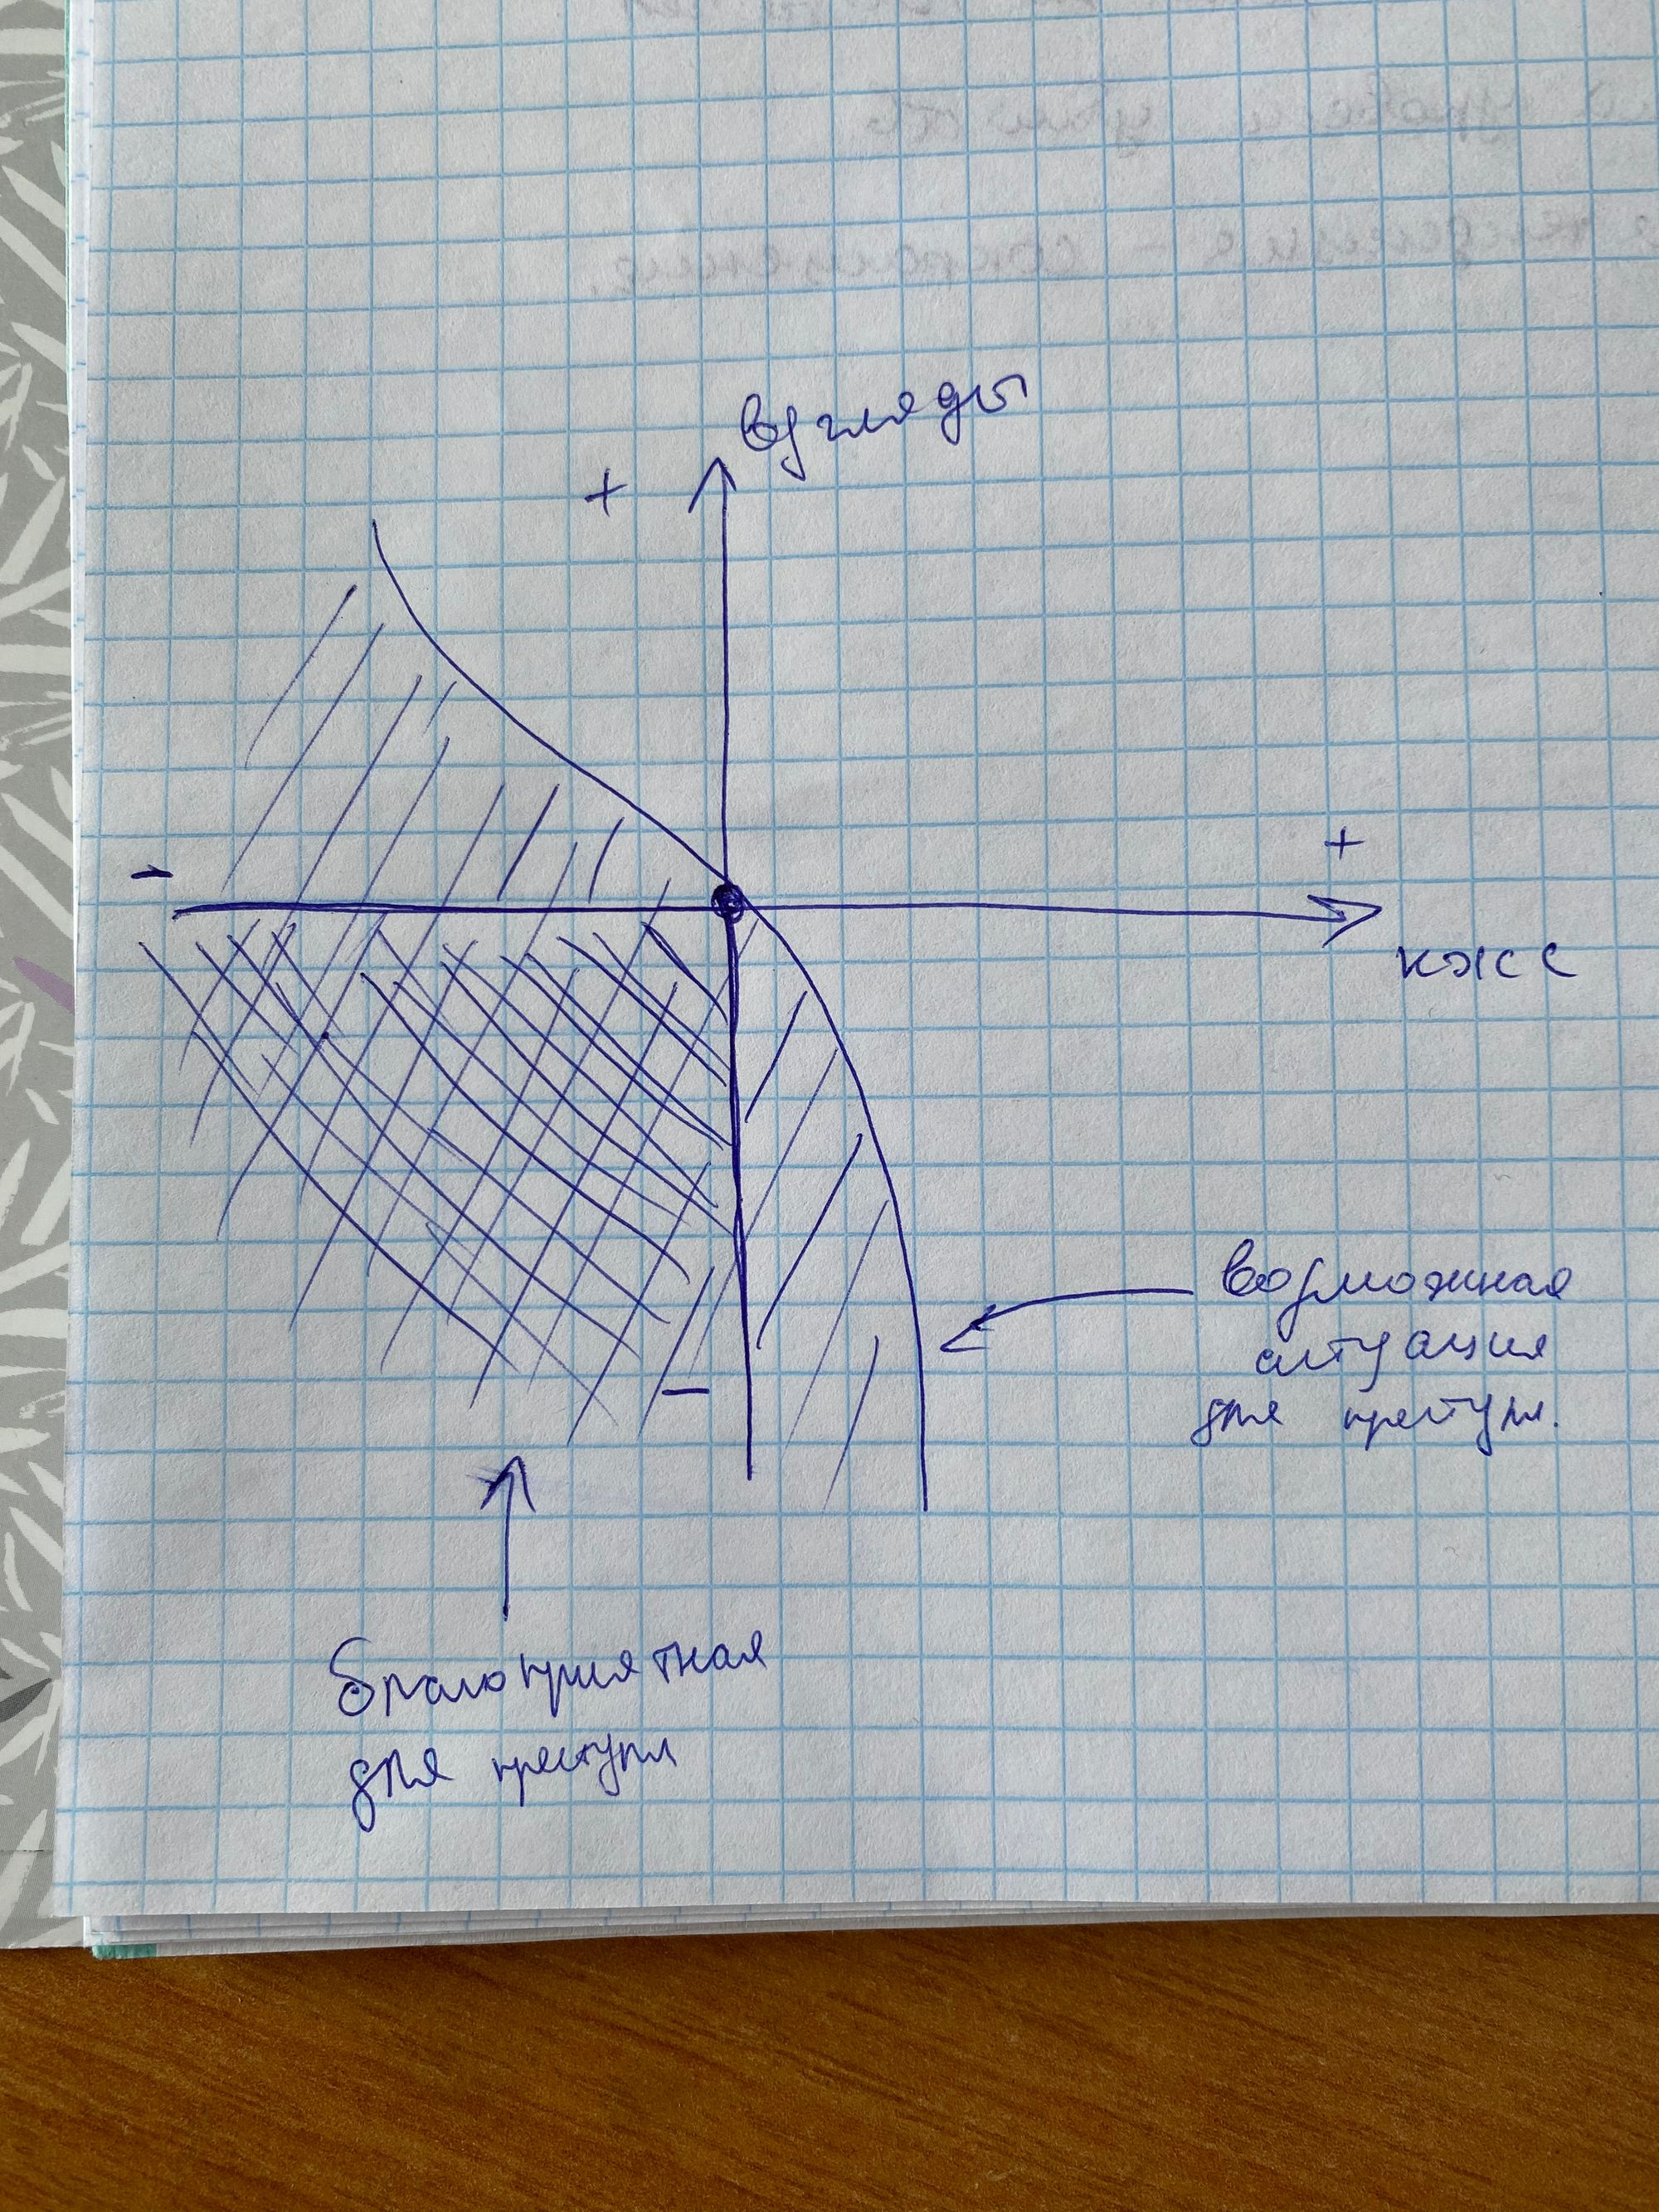 взгляды
+
-
+
кжсс
возможная
ситуация
для преступл.
-
благоприятная
для преступл